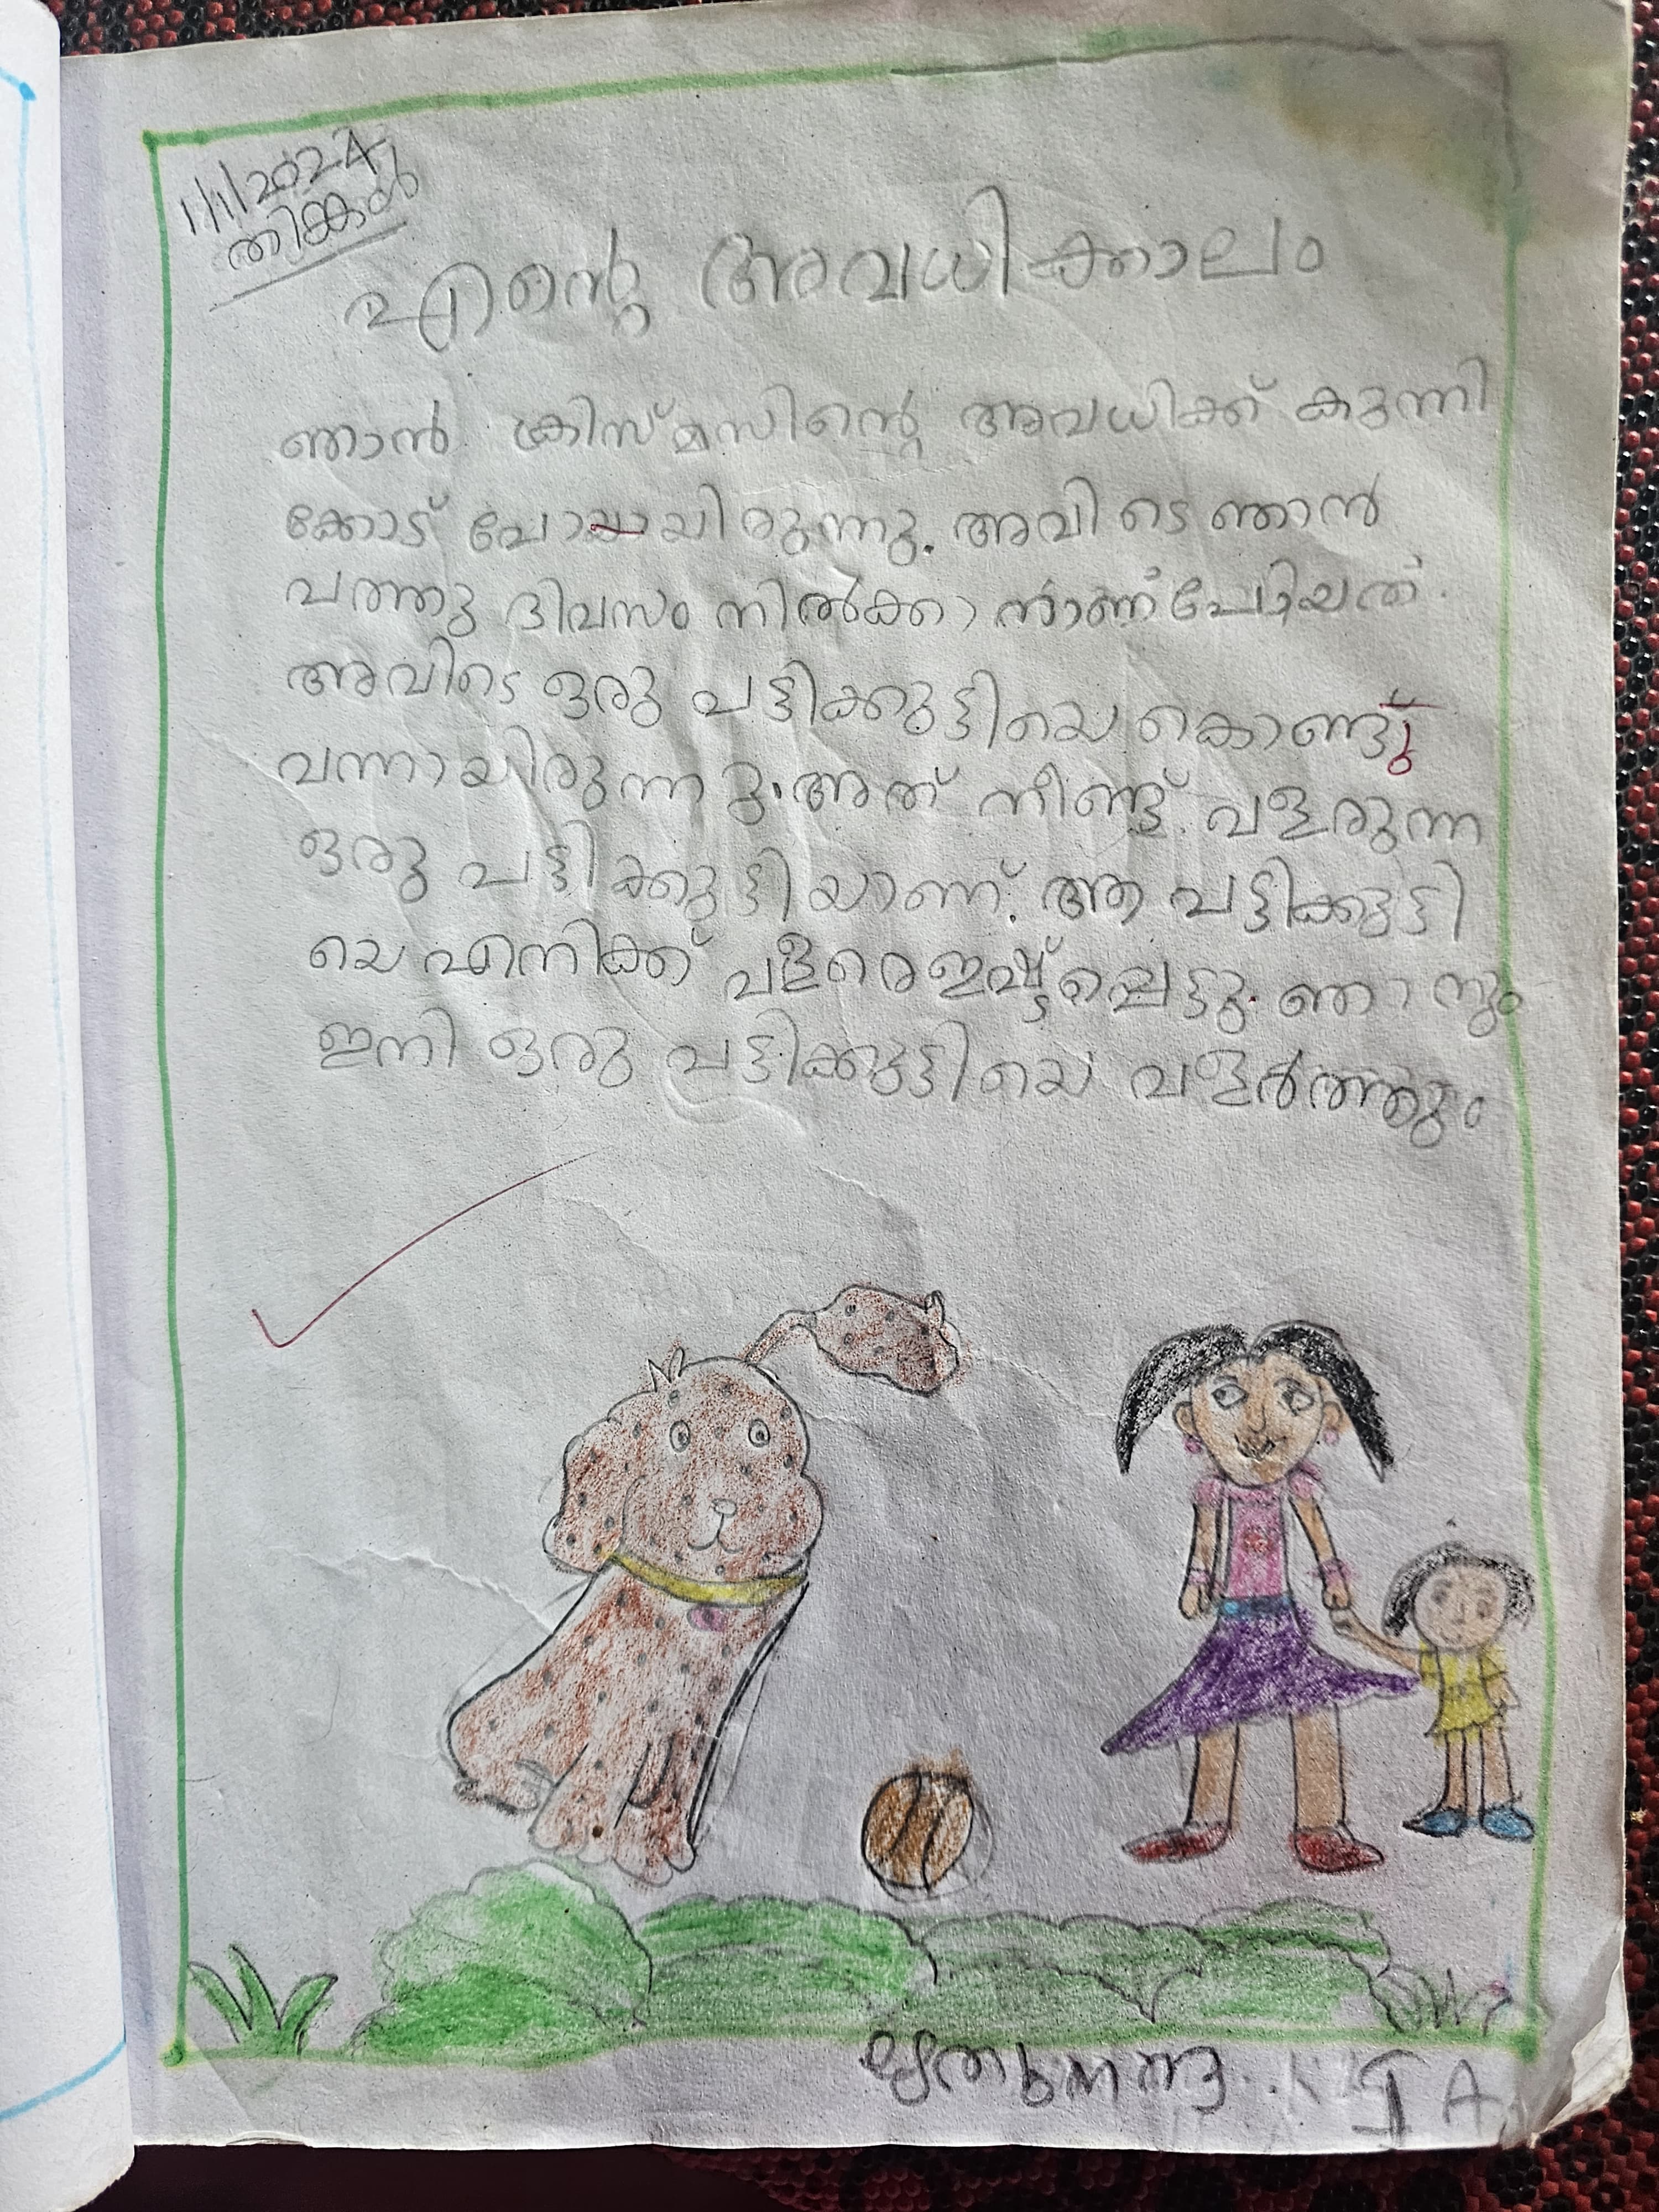 1/1/2024
തിങ്കൾ
എന്റെ അവധിക്കാലം
ഞാൻ ക്രിസ്മസിന്റെ അവധിക്ക് കുന്നി
ക്കോട് പോയായിരുന്നു. അവിടെ ഞാൻ
പത്തു ദിവസം നിൽക്കാനാണ് പോയത്.
അവിടെ ഒരു പട്ടിക്കുട്ടിയെ കൊണ്ടു
വന്നായിരുന്നു. അത് നീണ്ട് വളരുന്ന
ഒരു പട്ടിക്കുട്ടിയാണ്. ആ പട്ടിക്കുട്ടി
യെ എനിക്ക് വളരെ ഇഷ്ട്ടപ്പെട്ടു. ഞാനും
ഇനി ഒരു പട്ടിക്കുട്ടിയെ വളർത്തും
I A